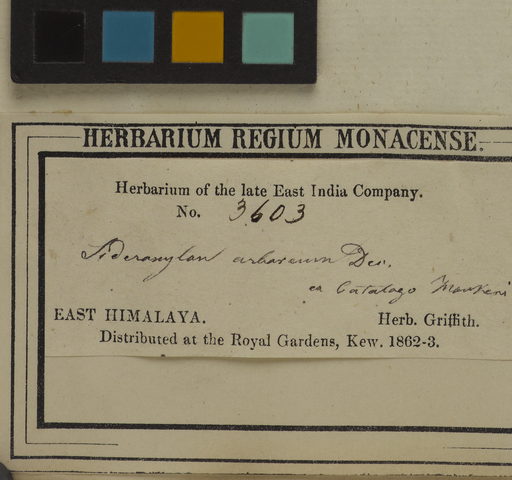 HERBARIUM REGIUM MONACENSE.
Herbarium of the late East India Company.
No. 3603
Sideroxylon arboreum
ex Catalogo
EAST HIMALAYA. Herb. Griffith.
Distributed at the Royal Gardens, Kew. 1862-3.